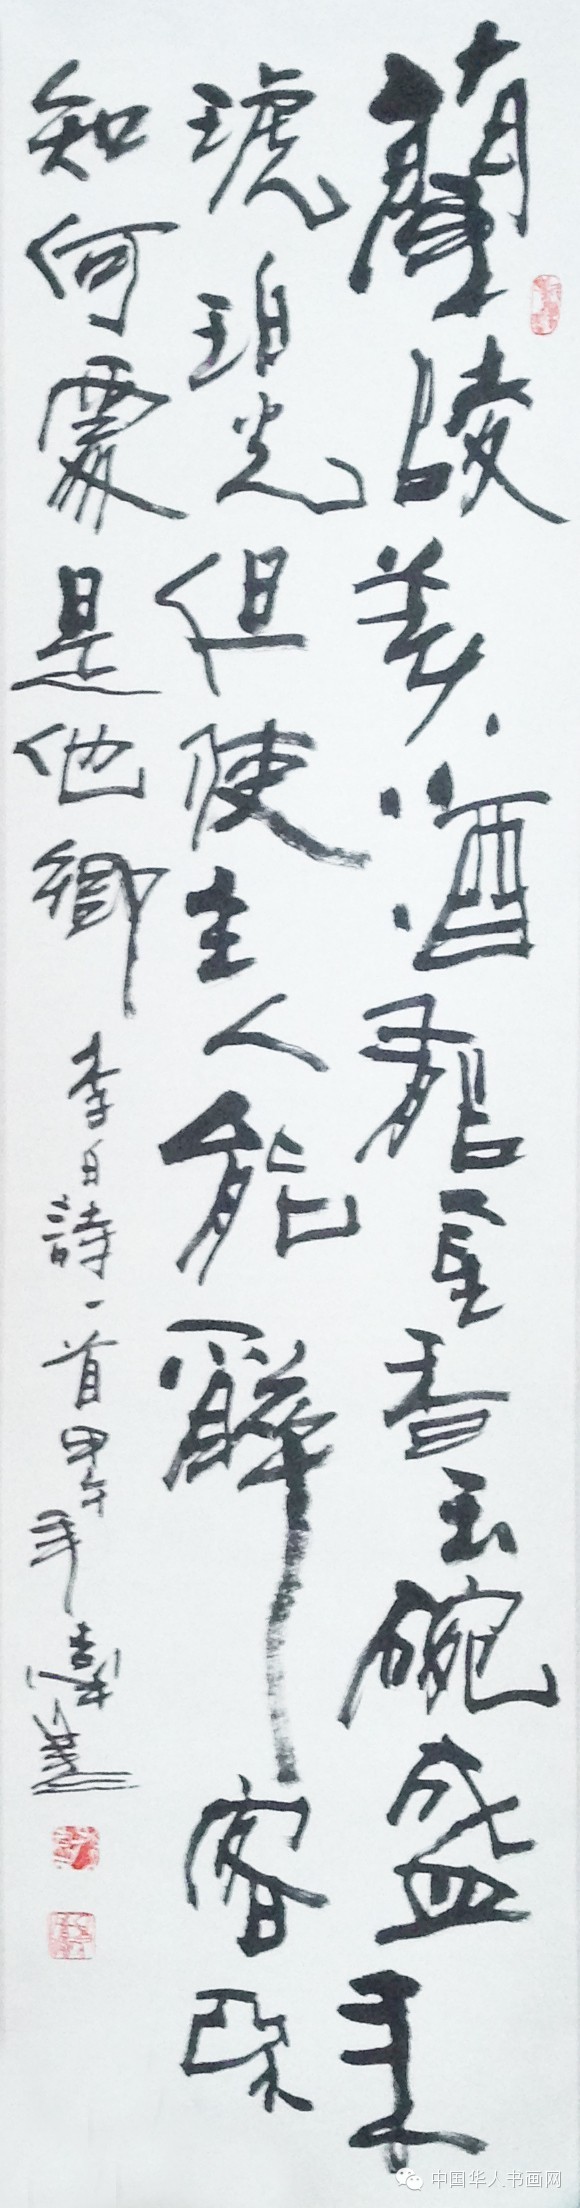 蘭陵美酒郁金香玉碗盛来
琥珀光但使主人能醉客不
知何處是他鄉 李白詩一首甲午年
中国华人书画网